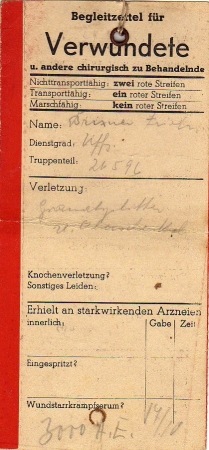 Begleitzettel für
Verwundete
u. andere chirurgisch zu Behandelnde
Nichttransportfähig: zwei rote Streifen
Transportfähig: ein roter Streifen
Marschfähig: kein roter Streifen
Name:
Dienstgrad: Uffz.
Truppenteil: 26596
Verletzung:
Knochenverletzung?
Sonstiges Leiden:
Erhielt an starkwirkenden Arzneien
innerlich: Gabe Zeit
Eingespritzt?
Wundstarrkrampfserum?
3000 A.E.